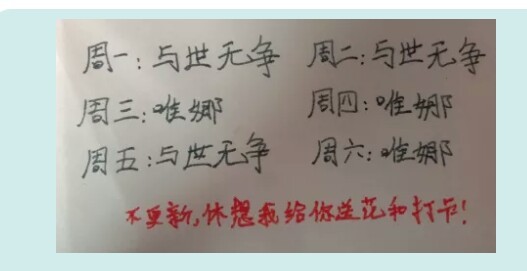 周一:与世无争 周二:与世无争
周三:唯娜 周四:唯娜
周五:与世无争 周六:唯娜
不更新,休想我给你送花和打卡!